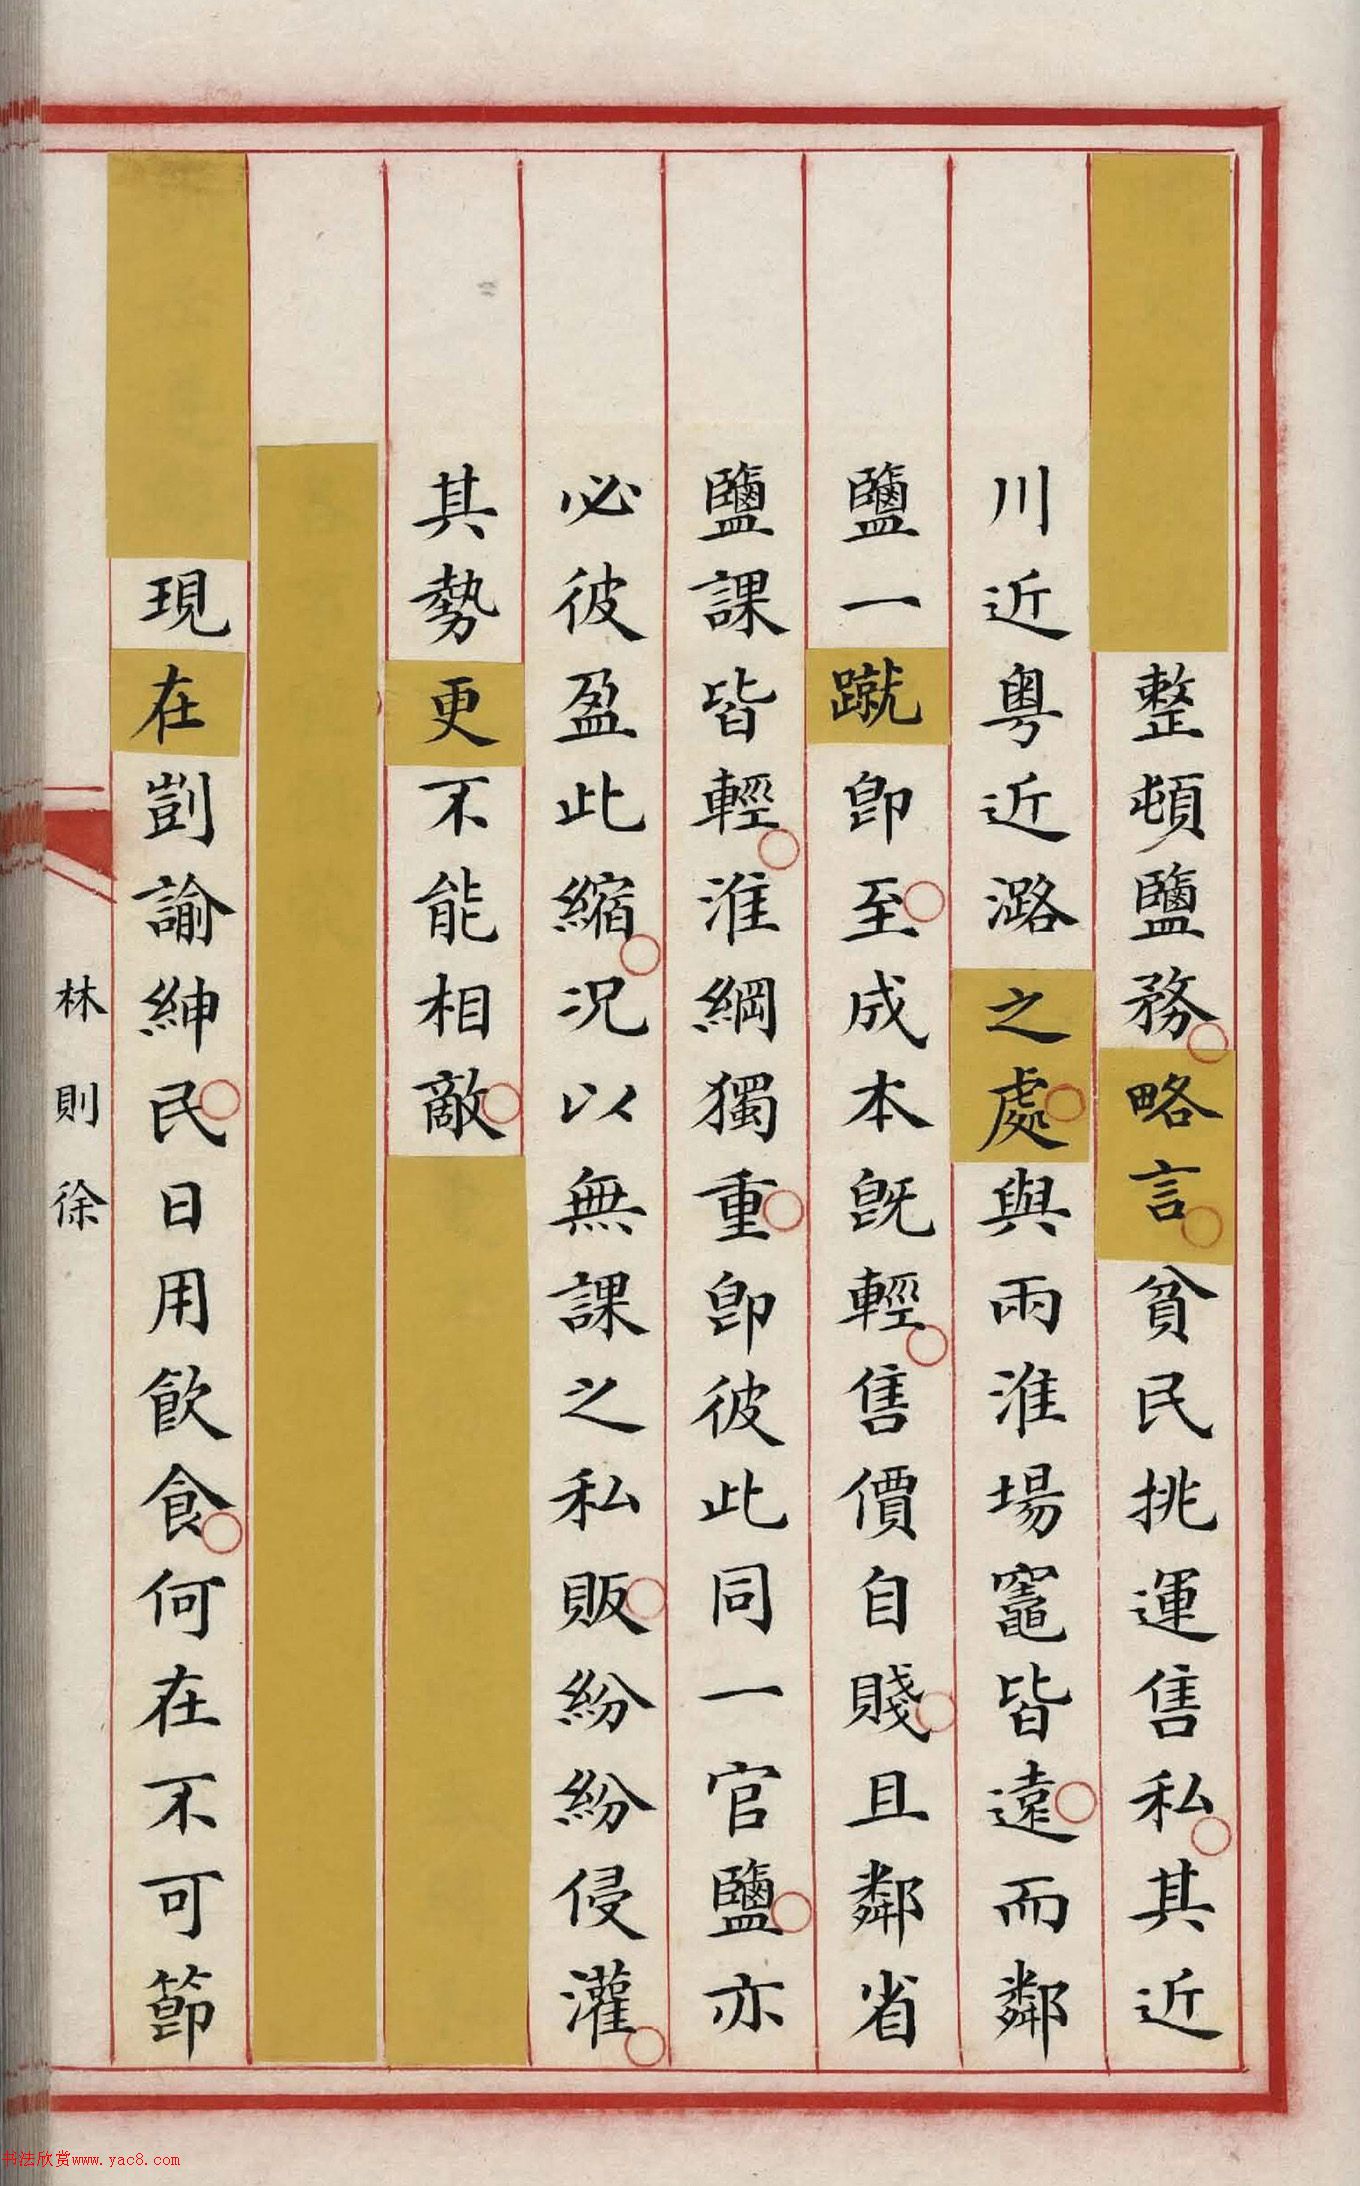 整頓鹽務略言貧民挑運售私其近
川近粵近潞之處與兩淮場竈皆遠而鄰
鹽一蹴卽至成本旣輕售價自賤且鄰省
鹽課皆輕淮綱獨重卽彼此同一官鹽亦
必彼盈此縮況以無課之私販紛紛侵灌
其勢更不能相敵
現在剴諭紳民日用飲食何在不可節
林則徐
书法欣赏www.yac8.com